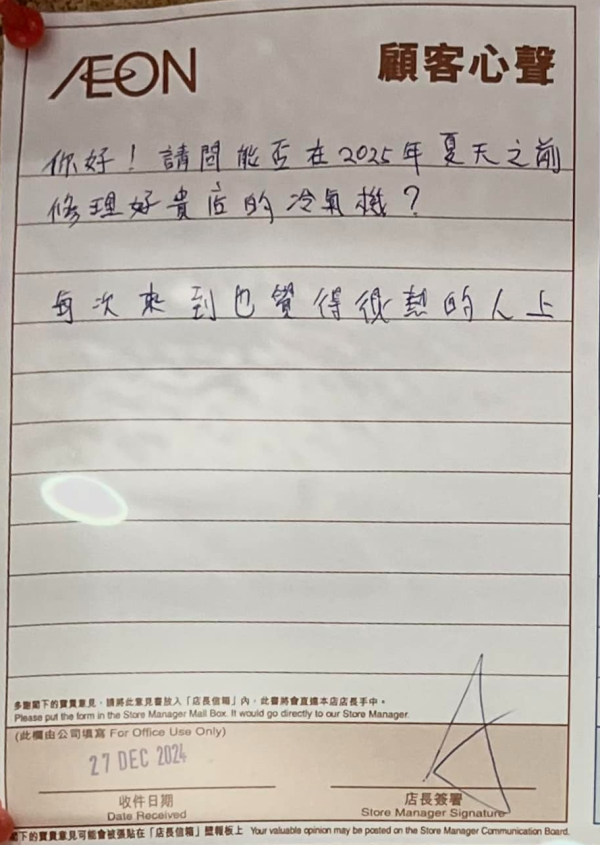 ÆON
顧客心聲
你好！請問能否在2025年夏天之前
修理好貴店的冷氣機？
每次來到也覺得很熱的人上
多謝閣下的寶貴意見，請將此意見書放入「店長信箱」內，此書將會直達本店店長手中。
Please put the form in the Store Manager Mail Box. It would go directly to our Store Manager.
(此欄由公司填寫 For Office Use Only)
27 DEC 2024
收件日期
店長簽署
Date Received
Store Manager Signature
閣下的寶貴意見可能會被張貼在「店長信箱」壁報板上 Your valuable opinion may be posted on the Store Manager Communication Board.